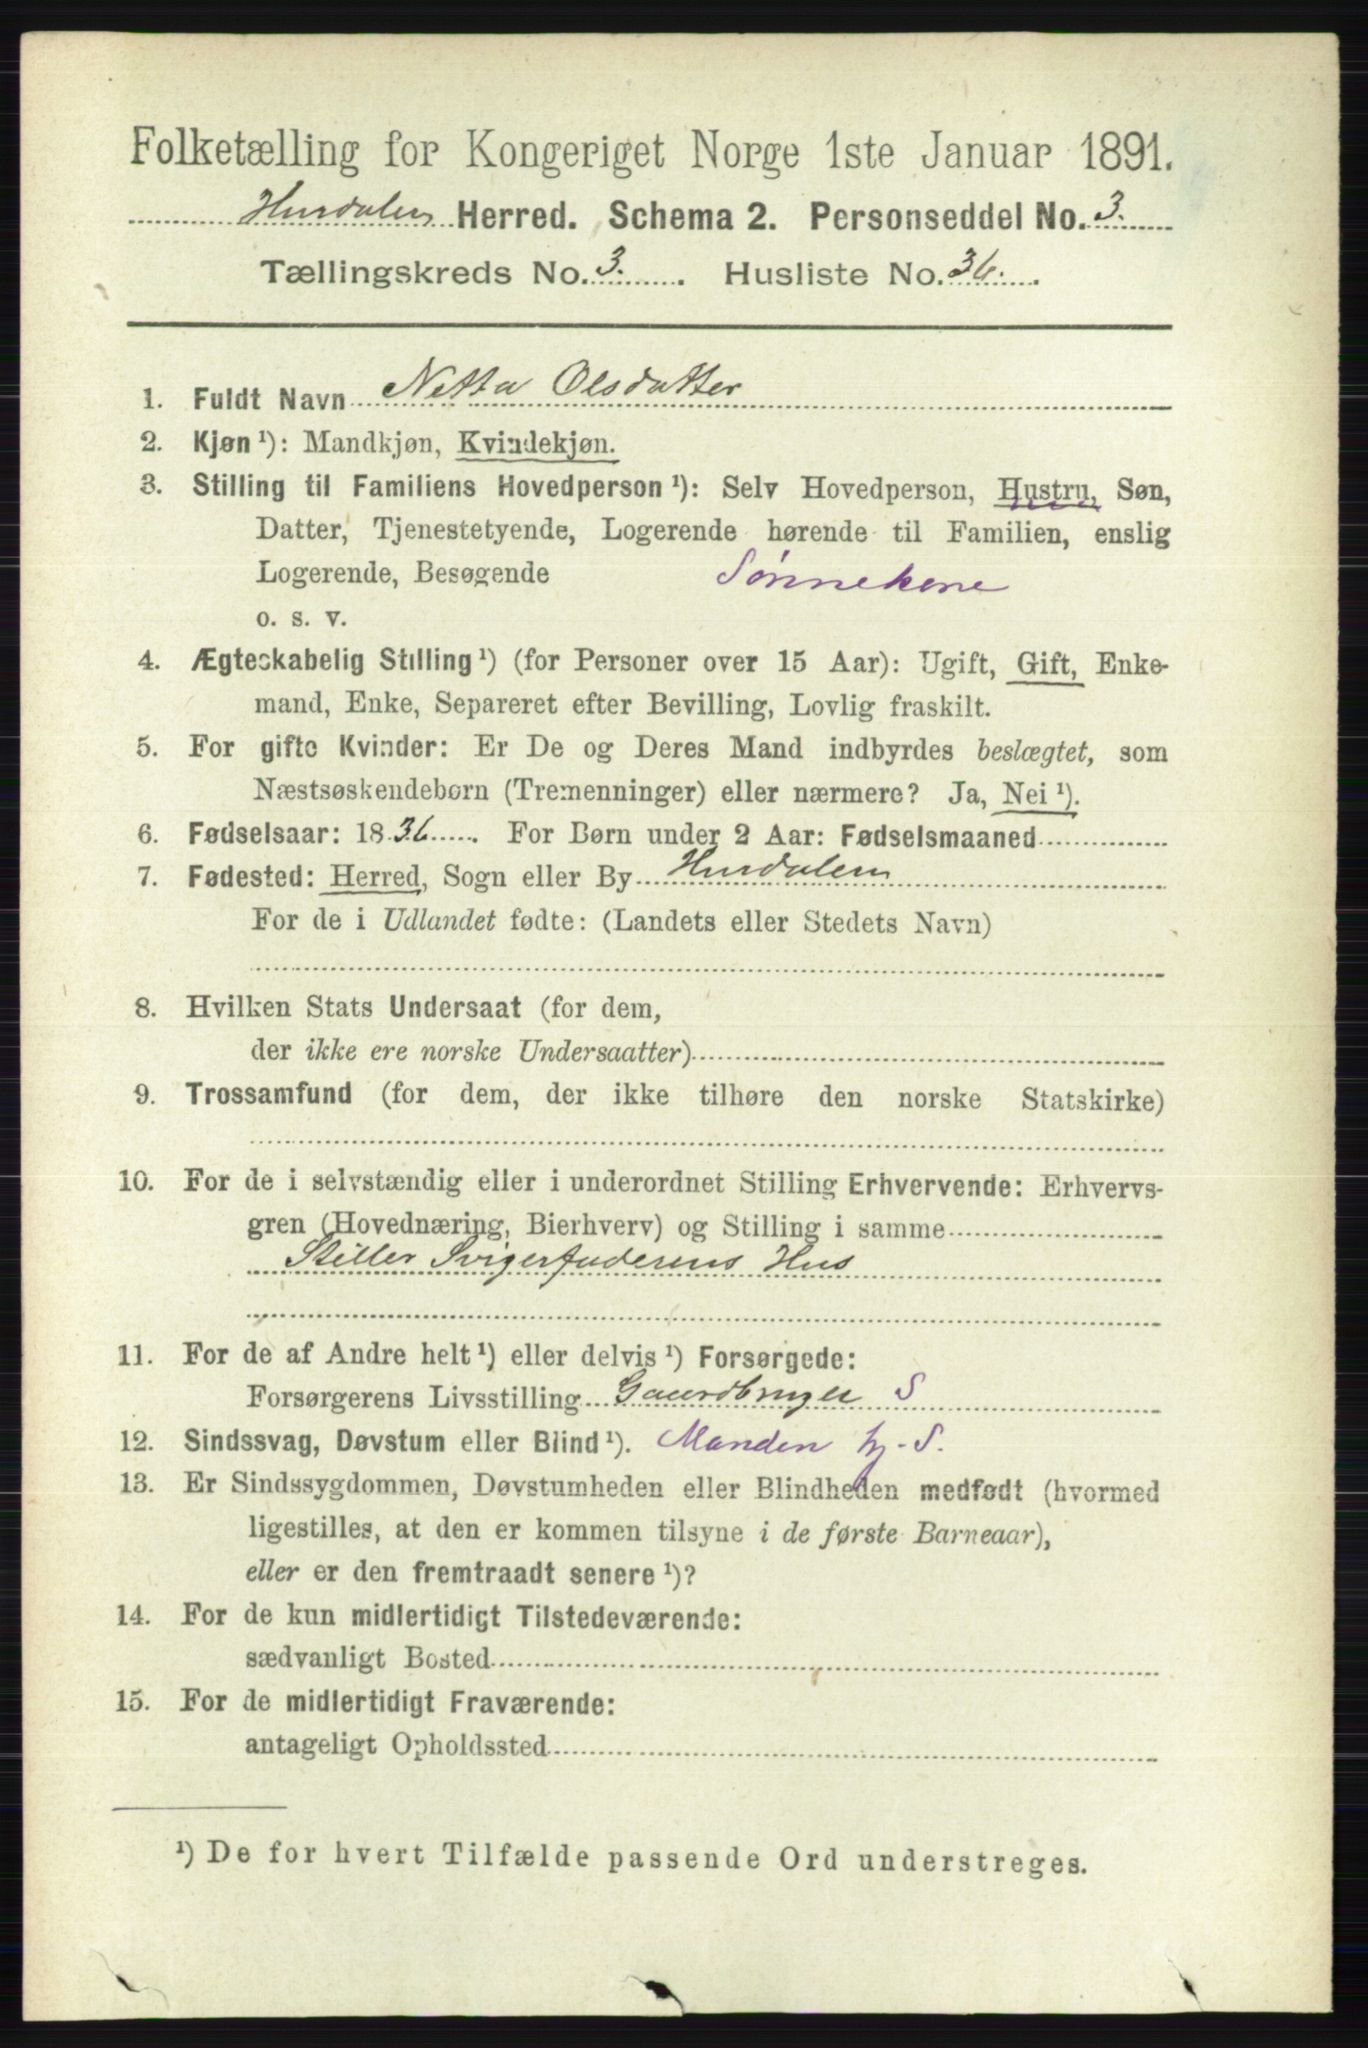 Folketælling for Kongeriget Norge 1ste Januar 1891.
Hurdalen Herred. Schema 2. Personseddel No. 3.
Tællingskreds No. 3. Husliste No. 36.
1. Fuldt Navn Netta Olsdatter
2. Kjøn¹): Mandkjøn, Kvindekjøn.
3. Stilling til Familiens Hovedperson¹): Selv Hovedperson, Hustru, Søn,
Datter, Tjenestetyende, Logerende hørende til Familien, enslig
Logerende, Besøgende Sønnekone
o. s. v.
4. Ægteskabelig Stilling¹) (for Personer over 15 Aar): Ugift, Gift, Enke-
mand, Enke, Separeret efter Bevilling, Lovlig fraskilt.
5. For gifte Kvinder: Er De og Deres Mand indbyrdes beslægtet, som
Næstsøskendebørn (Tremenninger) eller nærmere? Ja, Nei¹).
6. Fødselsaar: 1836. For Børn under 2 Aar: Fødselsmaaned
7. Fødested: Herred, Sogn eller By Hurdalen
For de i Udlandet fødte: (Landets eller Stedets Navn)
8. Hvilken Stats Undersaat (for dem,
der ikke ere norske Undersaatter)
9. Trossamfund (for dem, der ikke tilhøre den norske Statskirke)
10. For de i selvstændig eller i underordnet Stilling Erhvervende: Erhvervs-
gren (Hovednæring, Bierhverv) og Stilling i samme
Steller Svigerfaderens Hus
11. For de af Andre helt¹) eller delvis¹) Forsørgede:
Forsørgerens Livsstilling Gaardbruger S
12. Sindssvag, Døvstum eller Blind¹). Manden hj. S.
13. Er Sindssygdommen, Døvstumheden eller Blindheden medfødt (hvormed
ligestilles, at den er kommen tilsyne i de første Barneaar),
eller er den fremtraadt senere¹)?
14. For de kun midlertidigt Tilstedeværende:
sædvanligt Bosted
15. For de midlertidigt Fraværende:
antageligt Opholdssted
¹) De for hvert Tilfælde passende Ord understreges.